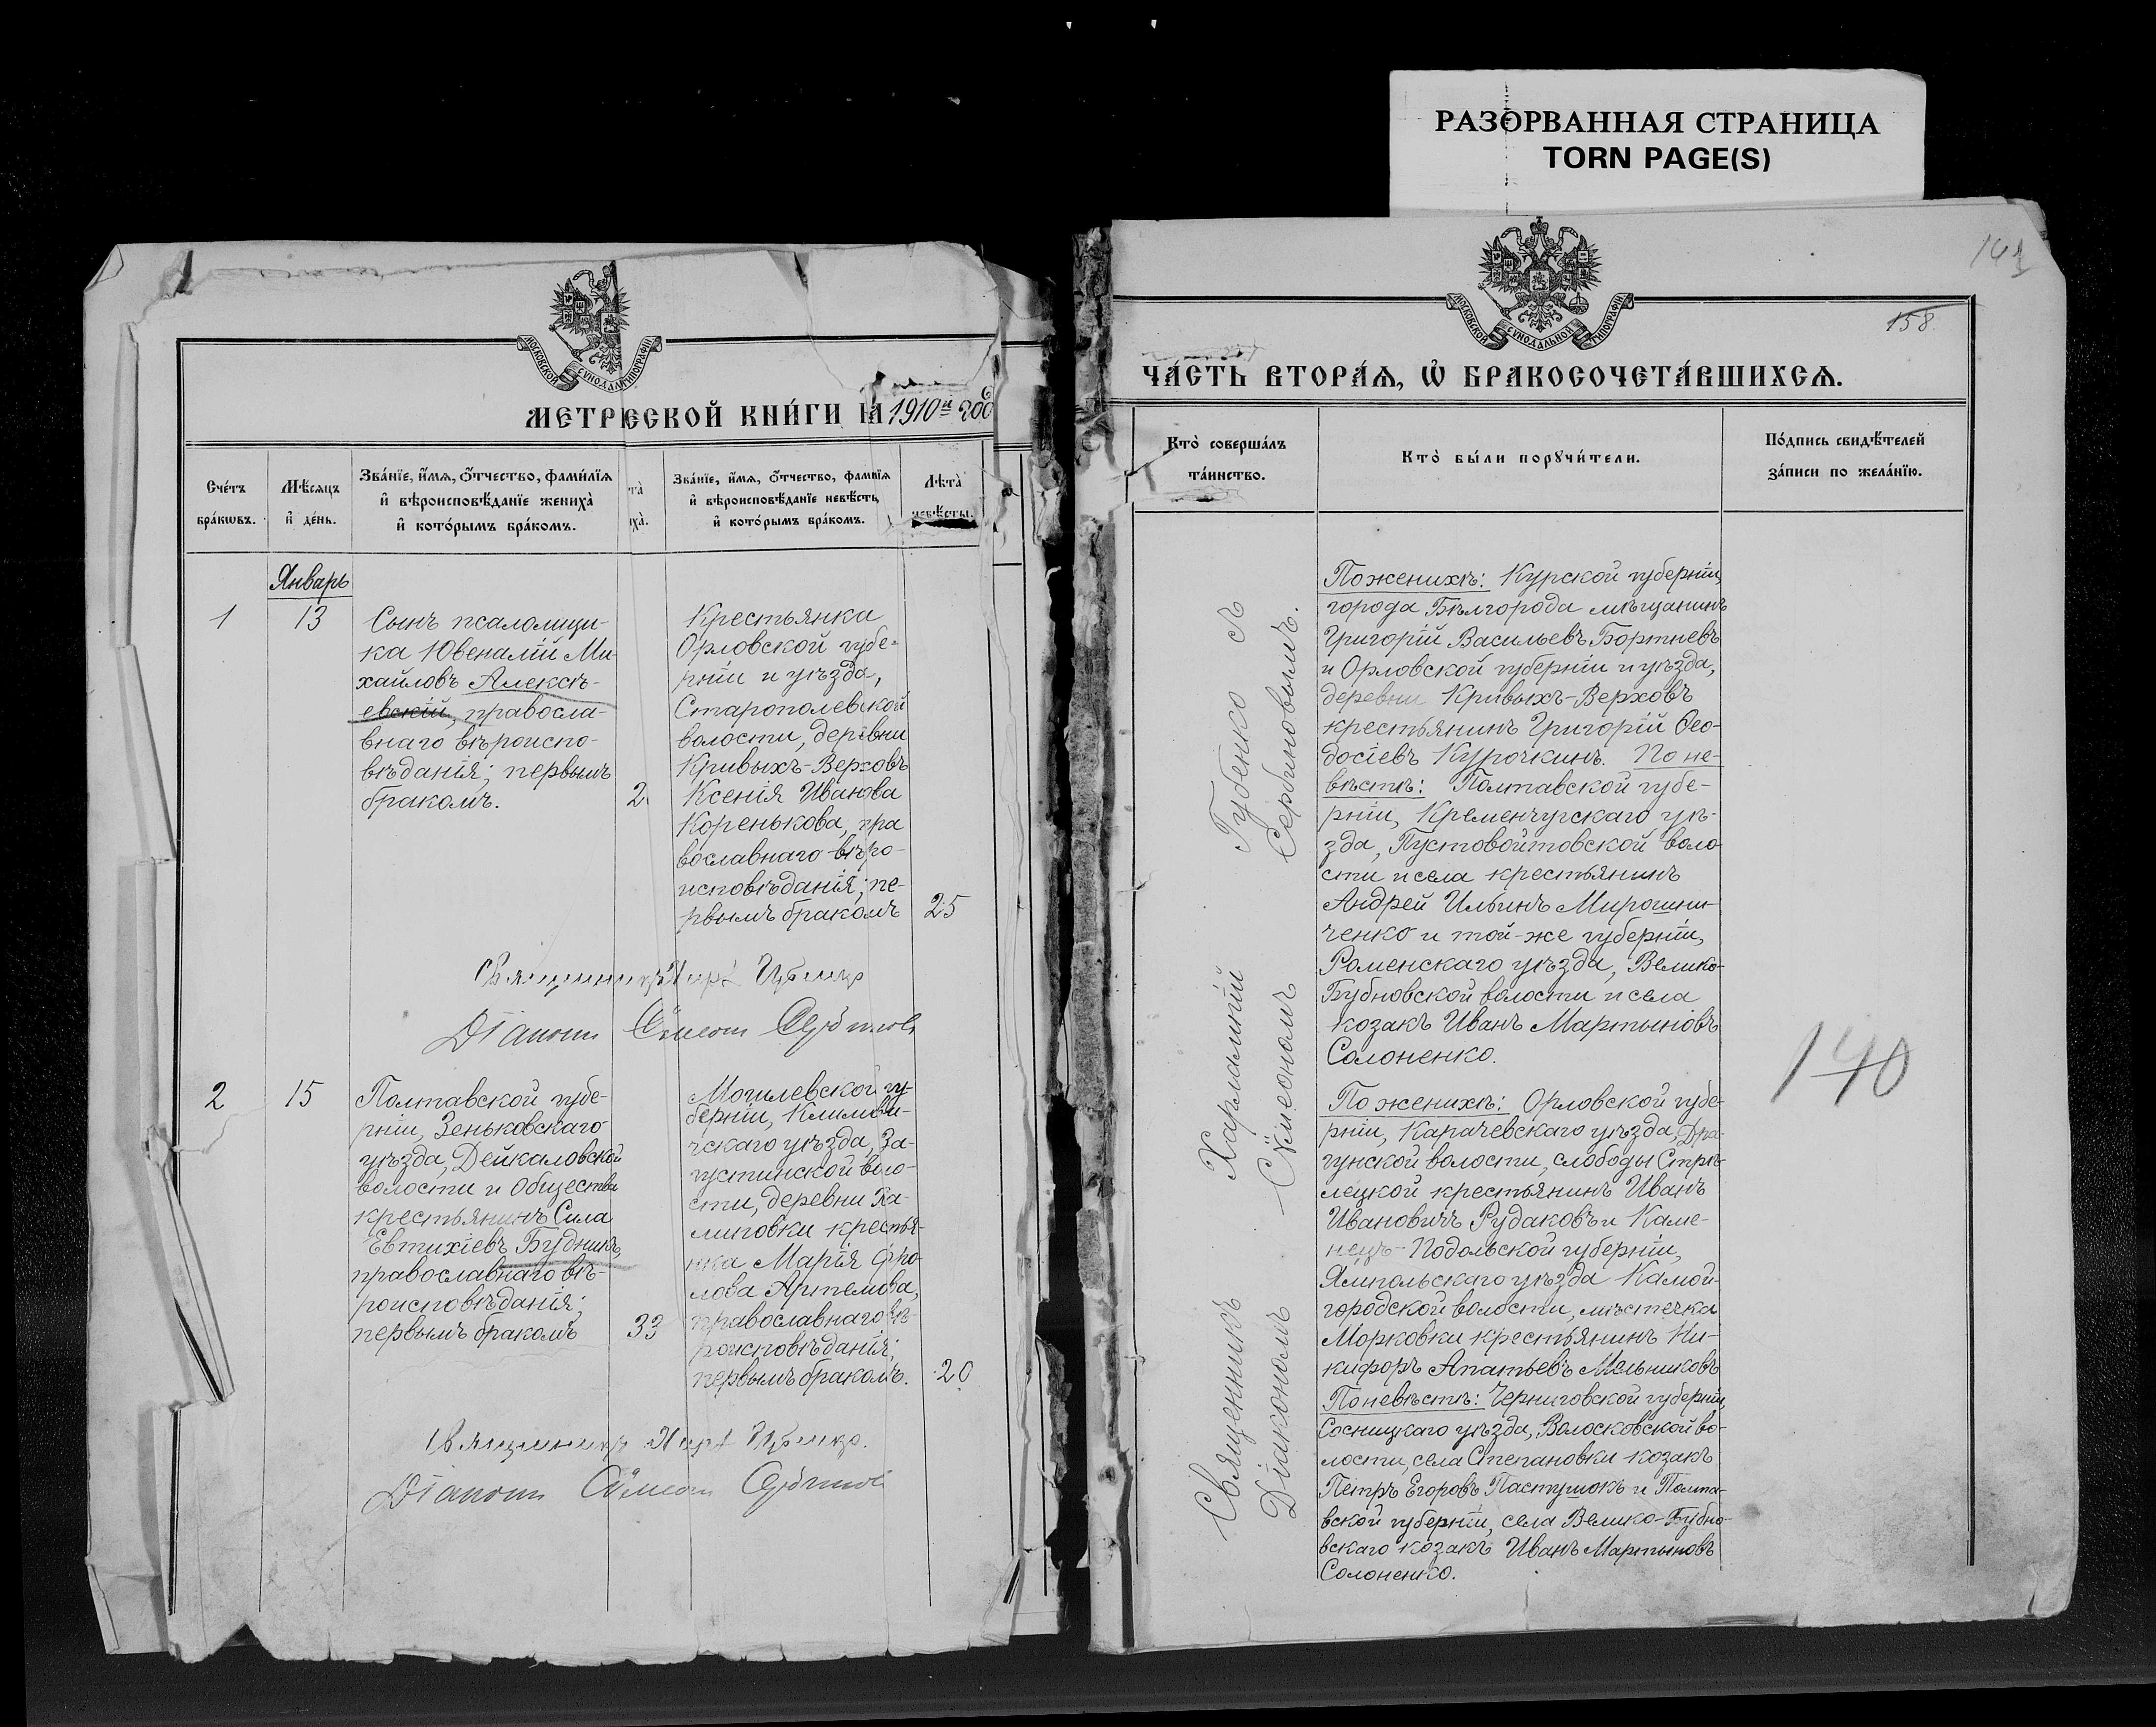 РАЗОРВАННАЯ СТРАНИЦА
TORN PAGE(S)
МОСКОВСКОЙ
МЕТР ЕСКОЙ КНИ́ГИ 1910й год
Сче́тъ
бра́кѡвъ.
Мѣ́сяцъ
и҆ де́нь.
Зва́нїе, и҆́мѧ, ѻ҆́тчество, фами́лїѧ
и҆ вѣроисповѣ́данїе жениха̀
и҆ кото́рымъ бра́комъ.
та̀
иха̀.
Зва́нїе, и҆́мѧ, ѻ҆́тчество, фами́лїѧ
и҆ вѣроисповѣ́данїе невѣ́сты
и҆ кото́рымъ бра́комъ.
Лѣ́та̀
невѣ́сты.
Январь
1
13
Сынъ псаломщи-
ка Ювеналій Ми-
хайловъ Алексѣ-
евскій, правосла-
внаго вѣроиспо-
вѣданія; первымъ
бракомъ.
2
Крестьянка
Орловской губе-
рніи и уѣзда,
Старополевской
волости, деревни
Кривыхъ-Верховъ
Ксенія Иванова
Коренькова, пра
вославнаго вѣро-
исповѣданія; пе-
рвымъ бракомъ
25
Священникъ Хар. Губенко
Діаконъ Сѵмеонъ Сербиновъ
2
15
Полтавской губе-
рніи, Зеньковскаго
уѣзда, Дейкаловской
волости и Общества
крестьянинъ Сила
Евтихіевъ Будникъ,
православнаго вѣ-
роисповѣданія;
первымъ бракомъ
33
Могилевской гу-
берніи, Климови-
чскаго уѣзда, За-
густинской воло-
сти, деревни Ка-
линовки крестья-
нка Марія Фро
лова Артемова,
православнаго вѣ-
роисповѣданія;
первымъ бракомъ.
20
Священникъ Хар. Губенко.
Діаконъ Сѵмеонъ Сербиновъ
141
158
МОСКОВСКОЙ СѴНОДАЛЬНОЙ ТИПОГРАФІИ
ЧА́СТЬ ВТОРА́Ѧ, Ѡ҆ БРАКОСОЧЕТА́ВШИХСѦ.
Кто̀ соверша́лъ
та́инство.
Кто̀ бы́ли порꙋчи́тели.
По́дпись свидѣ́телей
за́писи по жела́нїю.
Священникъ Харлампій Губенко съ
Діакономъ Сѵмеономъ Сербиновымъ.
По женихѣ: Курской губерніи,
города Бѣлгорода мѣщанинъ
Григорій Васильевъ Бортневъ
и Орловской губерніи и уѣзда,
деревни Кривыхъ-Верховъ
крестьянинъ Григорій Ѳео-
досіевъ Курочкинъ. По не-
вѣстѣ: Полтавской губе-
рніи, Кременчугскаго уѣ-
зда, Пустовойтовской воло
сти и села крестьянинъ
Андрей Ильинъ Мирошни-
ченко и той-же губерніи,
Роменскаго уѣзда, Велико-
Бубновской волости и села
козакъ Иванъ Мартыновъ
Солоненко.
140
По женихѣ: Орловской губе-
рніи, Карачевскаго уѣзда, Дра-
гунской волости, слободы Стрѣ-
лецкой крестьянинъ Иванъ
Ивановичъ Рудаковъ и Каме-
нецъ-Подольской губерніи,
Ямпольскаго уѣзда Камой-
городской волости, мѣстечка
Морковки крестьянинъ Ни-
кифоръ Апатьевъ Мельниковъ
По невѣстѣ: Черниговской губерніи,
Сосницкаго уѣзда, Волосковской во-
лости, села Степановки козакъ
Петръ Егоровъ Пастушокъ и Полта-
вской губерніи, села Велико-Бубно-
вскаго козакъ Иванъ Мартыновъ
Солоненко.